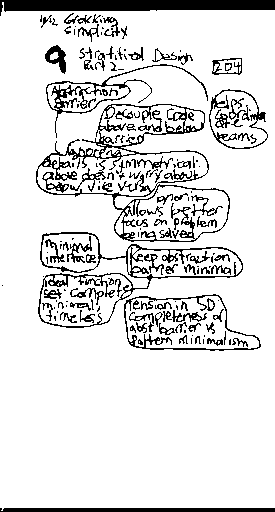 Grokking
Simplicity
9 Stratified Design
Part 2
204
Abstraction
barrier
Helps
coordination
of
teams
Decouple code
above and below
barrier
Ignoring
details is symmetrical:
above doesn't worry about
below, vice versa
Ignoring
allows better
focus on problem
being solved
minimal
interface
Keep abstraction
barrier minimal
ideal function
set: complete,
minimal,
timeless
Tension in SD
completeness of
abst barrier vs
pattern minimalism